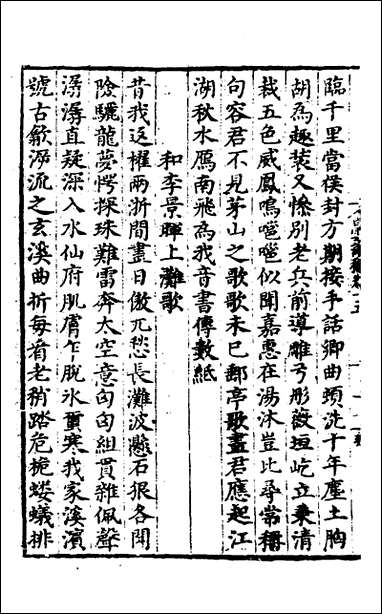 臨千里當樸封方期接手話卿曲頭洗十年塵土胸
胡為趣裝又慘別老兵前導雕弓彤薇垣屹立秉清
裁五色威鳳鳴噰噰似聞嘉惠在湯沐豈比尋常稱
句容君不見茅山之歌歌未已郵亭歌盡君應起江
湖秋水鴈南飛為我音書傳數紙
和李景暉上灘歌
昔我返櫂兩浙間晝日傲兀愁長灘波懸石狠各鬥
險驪龍夢愕探珠難雷奔太空意匈匈組貫雜佩聲
潺潺直疑深入水仙府肌膚乍脫氷蠶寒我家溪濱
號古歙沠流之玄溪曲折每看老稍踏危桅螻蟻排